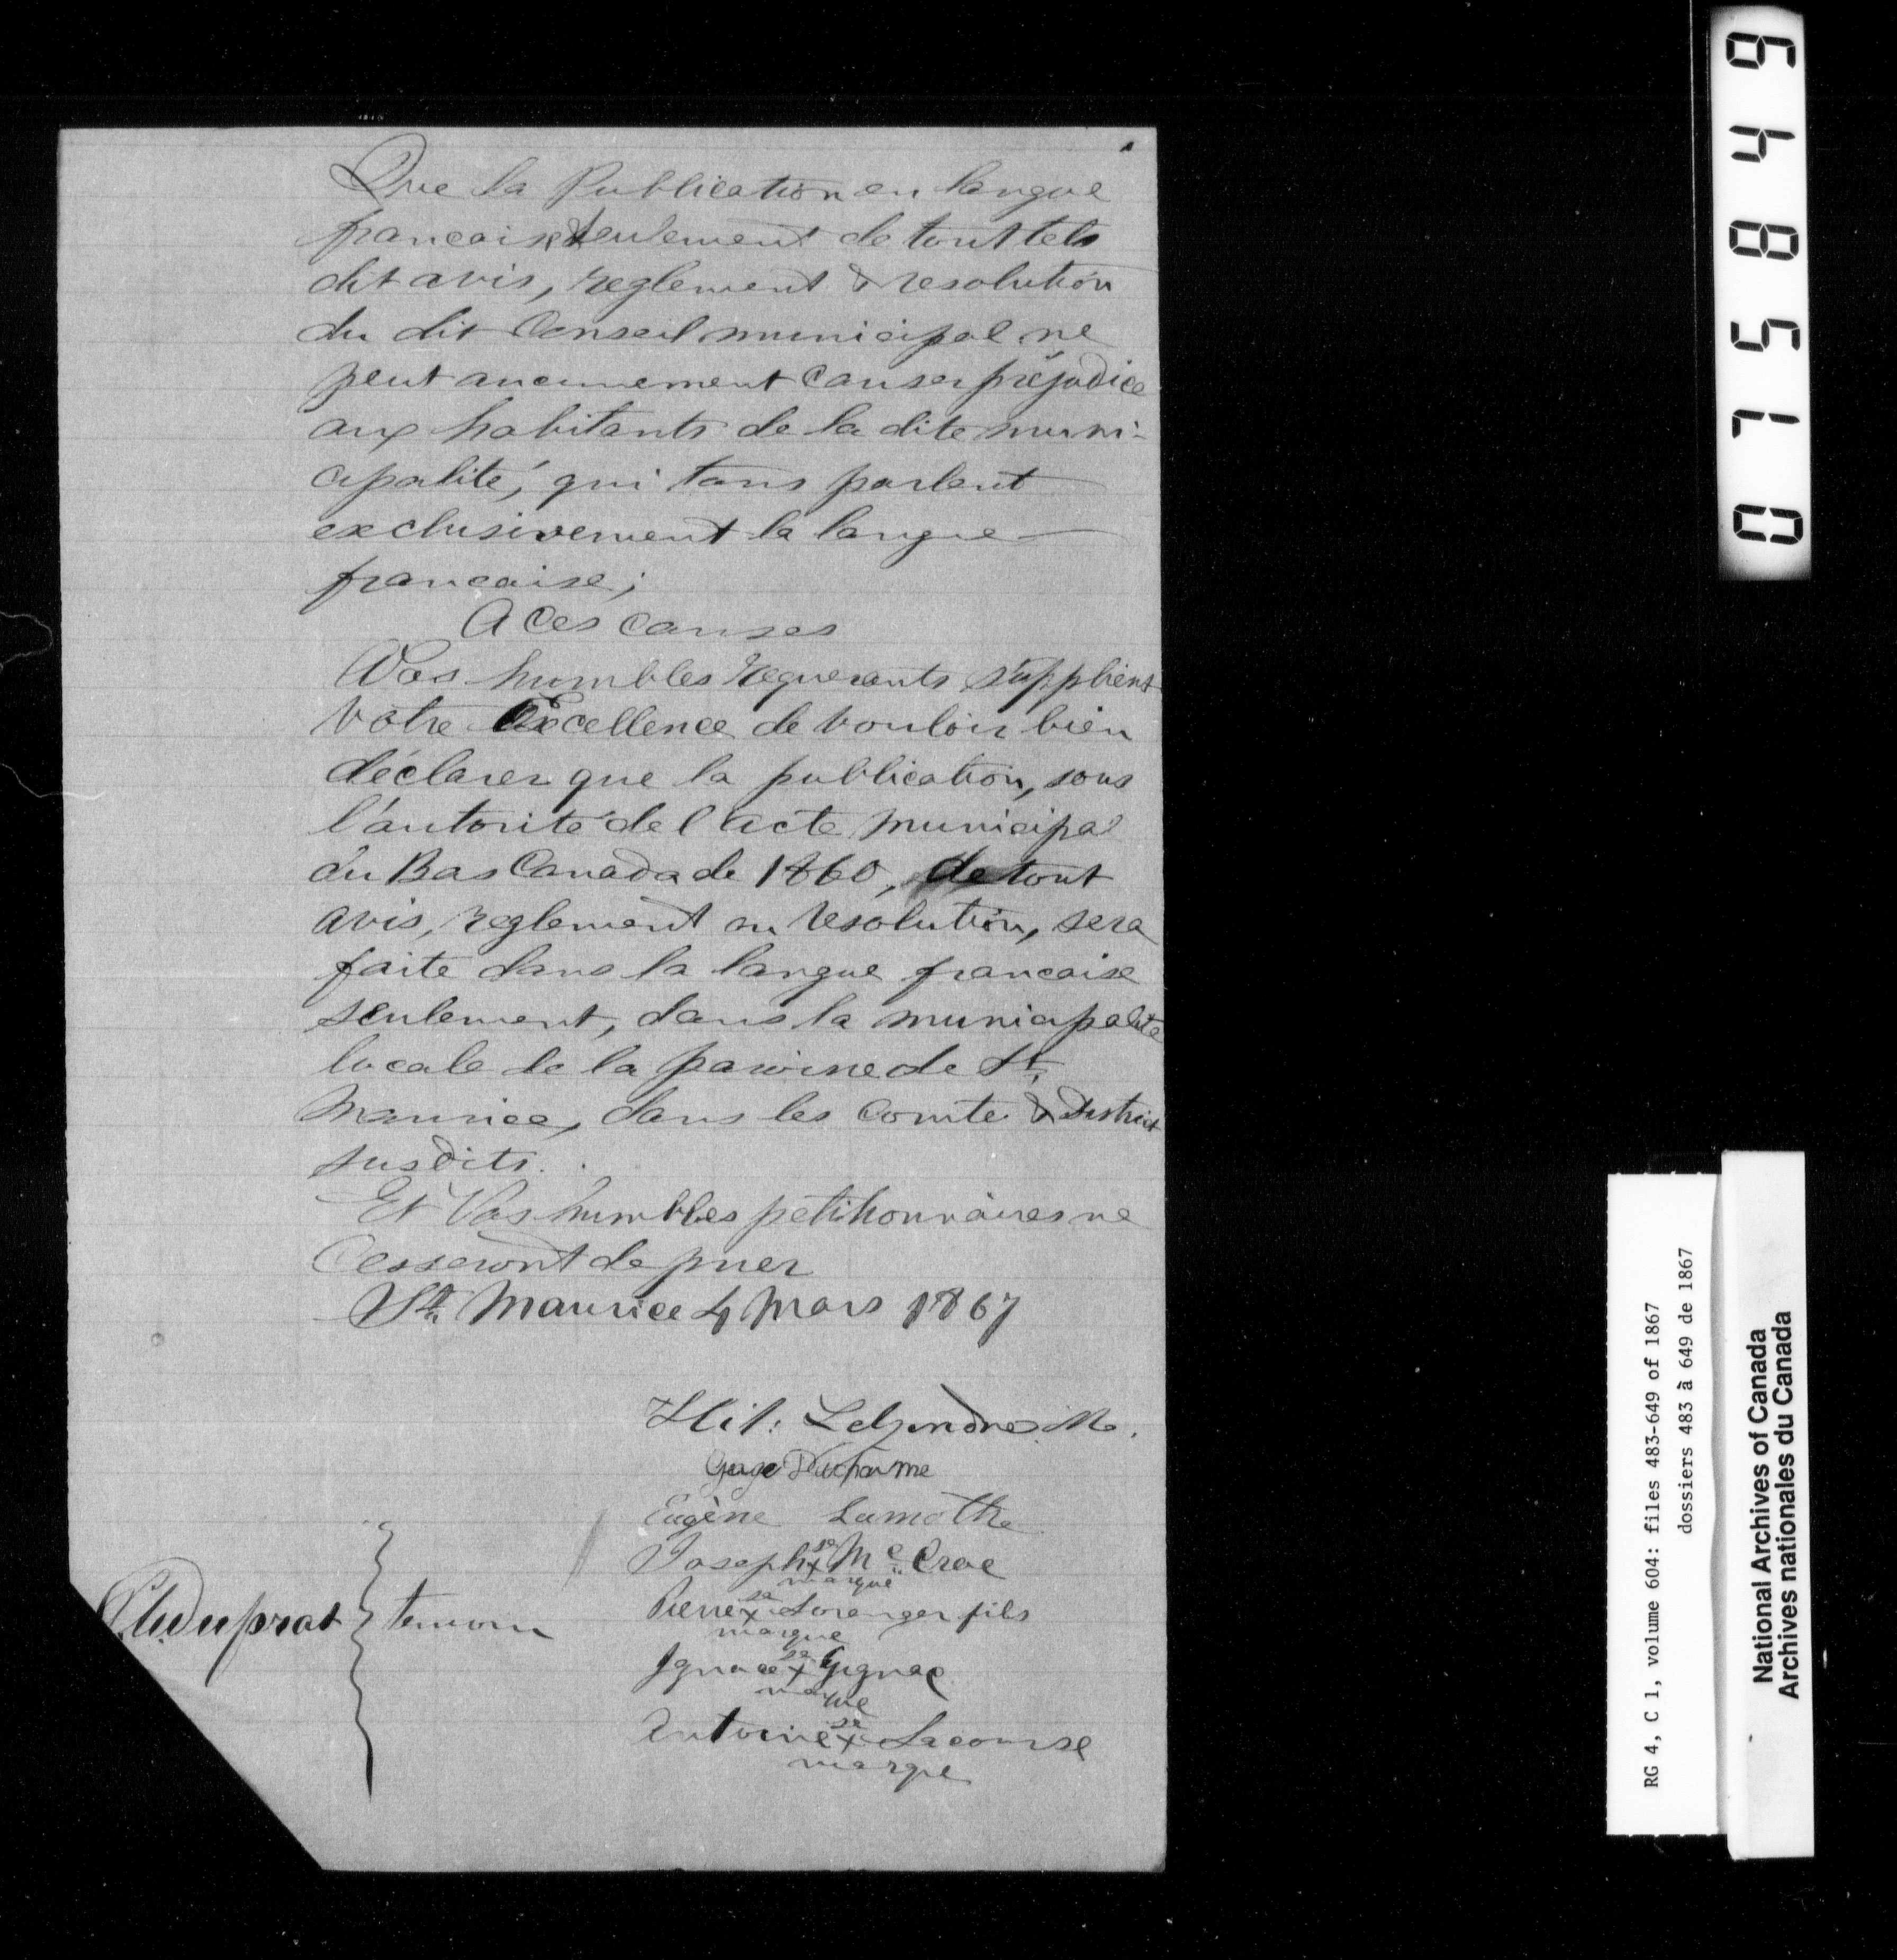 Que la Publication en langue
francaise seulement de tout tels
dit avis, reglement & resolution
du dit Conseil municipal ne
peut aucunement causer préjudice
aux habitants de la dite muni-
cipalité, qui tous parlent
exclusivement la langue
francaise;
A Ces causes
Vos humbles requerants supplient
Votre Excellence de vouloir bien
déclarer que la publication, sous
l'autorité de l'acte municipal
du Bas Canada de 1860, de tout
avis, reglement ou resolution, sera
faite dans la langue francaise
seulement, dans la municipalité
locale de la paroisse de St.
Maurice, dans les Comte & District
susdits.
Et Vos humbles pétitionnaires ne
Cesseront de prier
St. Maurice 4 Mars 1867
Hil: Legendre M.
George Ducharme
Eugène Lamothe
Joseph sa x marque Mc Crae
Pierre sa x marque Loranger fils
Ignace sa x marque Gignac
Antoine sa x marque Lacourse
Duprat } temoin
075849
RG 4, C 1, volume 604: files 483-649 of 1867
dossiers 483 à 649 de 1867
National Archives of Canada
Archives nationales du Canada